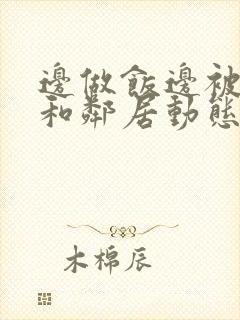 邊做飯邊被
和鄰居動態
木棉辰